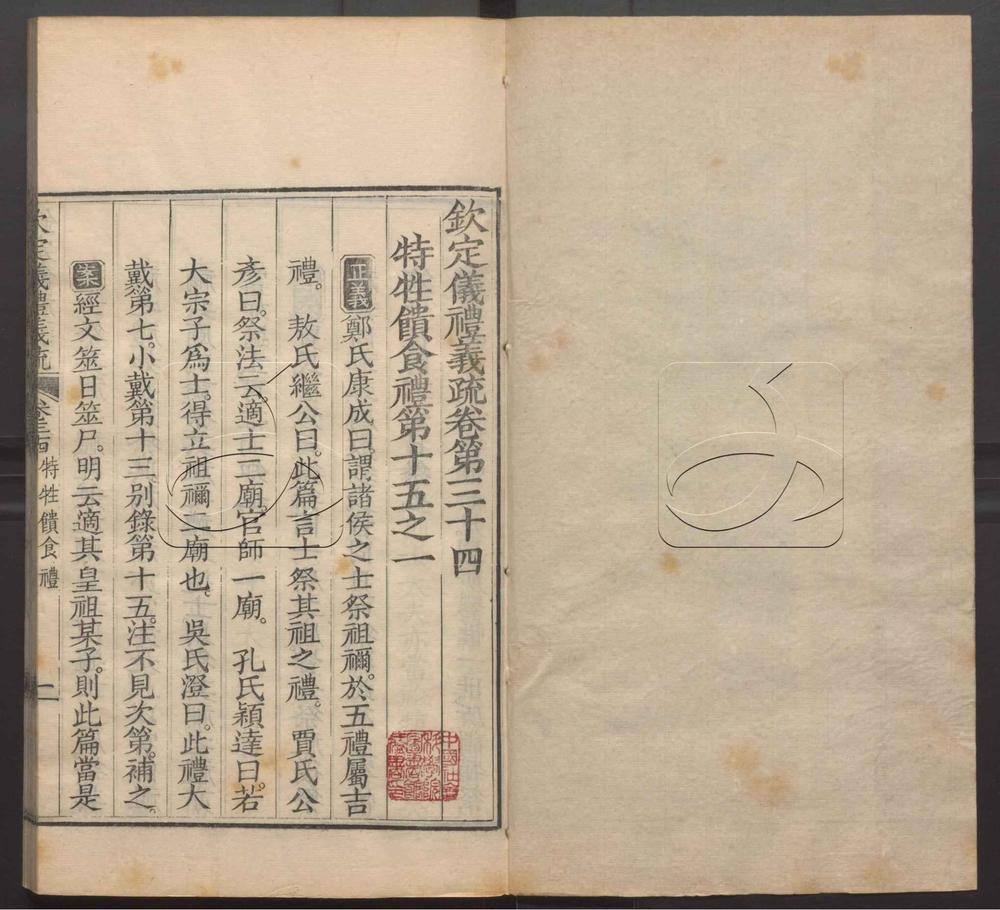 欽定儀禮義疏卷第三十四
特牲饋食禮第十五之一
正義鄭氏康成曰。謂諸侯之士祭祖禰。於五禮屬吉
禮。敖氏繼公曰。此篇言士祭其祖之禮。賈氏公
彥曰。祭法云。適士二廟。官師一廟。孔氏穎達曰。若
大宗子爲士。得立祖禰二廟也。吳氏澄曰。此禮大
戴第七。小戴第十三。別錄第十五。注不見次第。補之。
案經文筮日筮尸。明云適其皇祖某子。則此篇當是
欽定儀禮義疏 卷三十四 特牲饋食禮 一